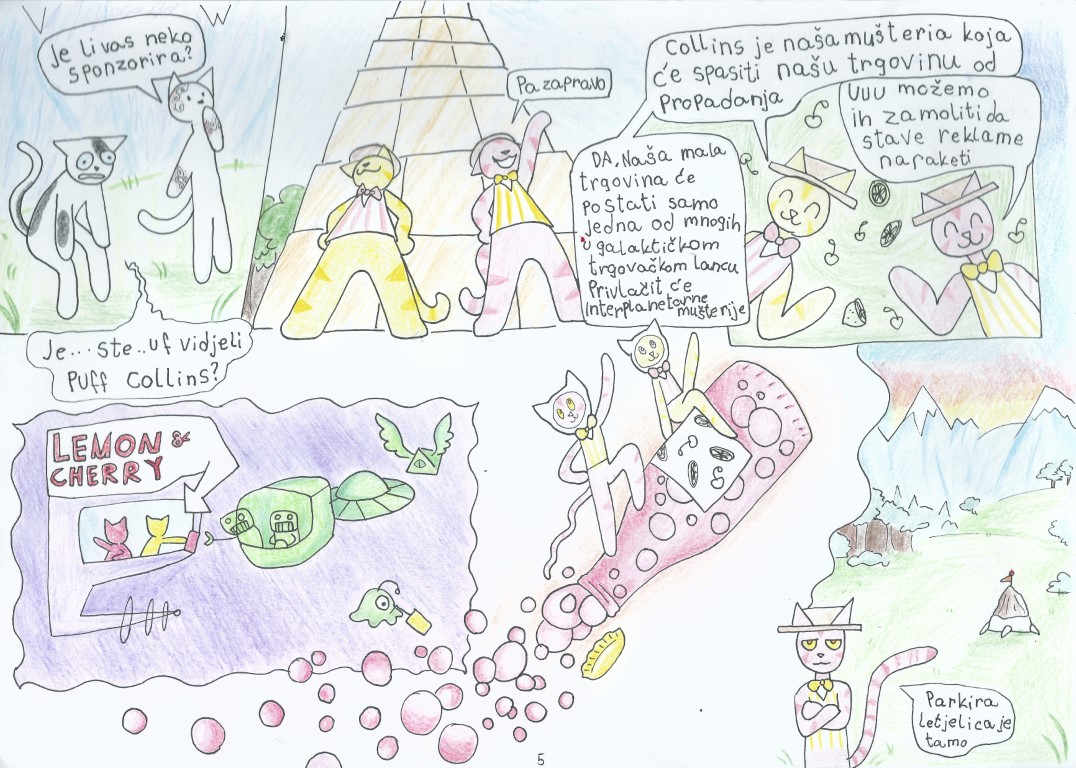 Je li vas neko
sponzorira?
Je...ste..uf vidjeli
Puff Collins?
Pa zapravo
DA. Naša mala
trgovina će
postati samo
jedna od mnogih
u galaktičkom
trgovačkom lancu
Privlačit će
interplanetarne
mušterije
Collins je naša mušteria koja
će spasiti našu trgovinu od
propadanja
UUU možemo
ih zamoliti da
stave reklame
na raketi
LEMON &
CHERRY
Parkira
letjelica je
tamo
5